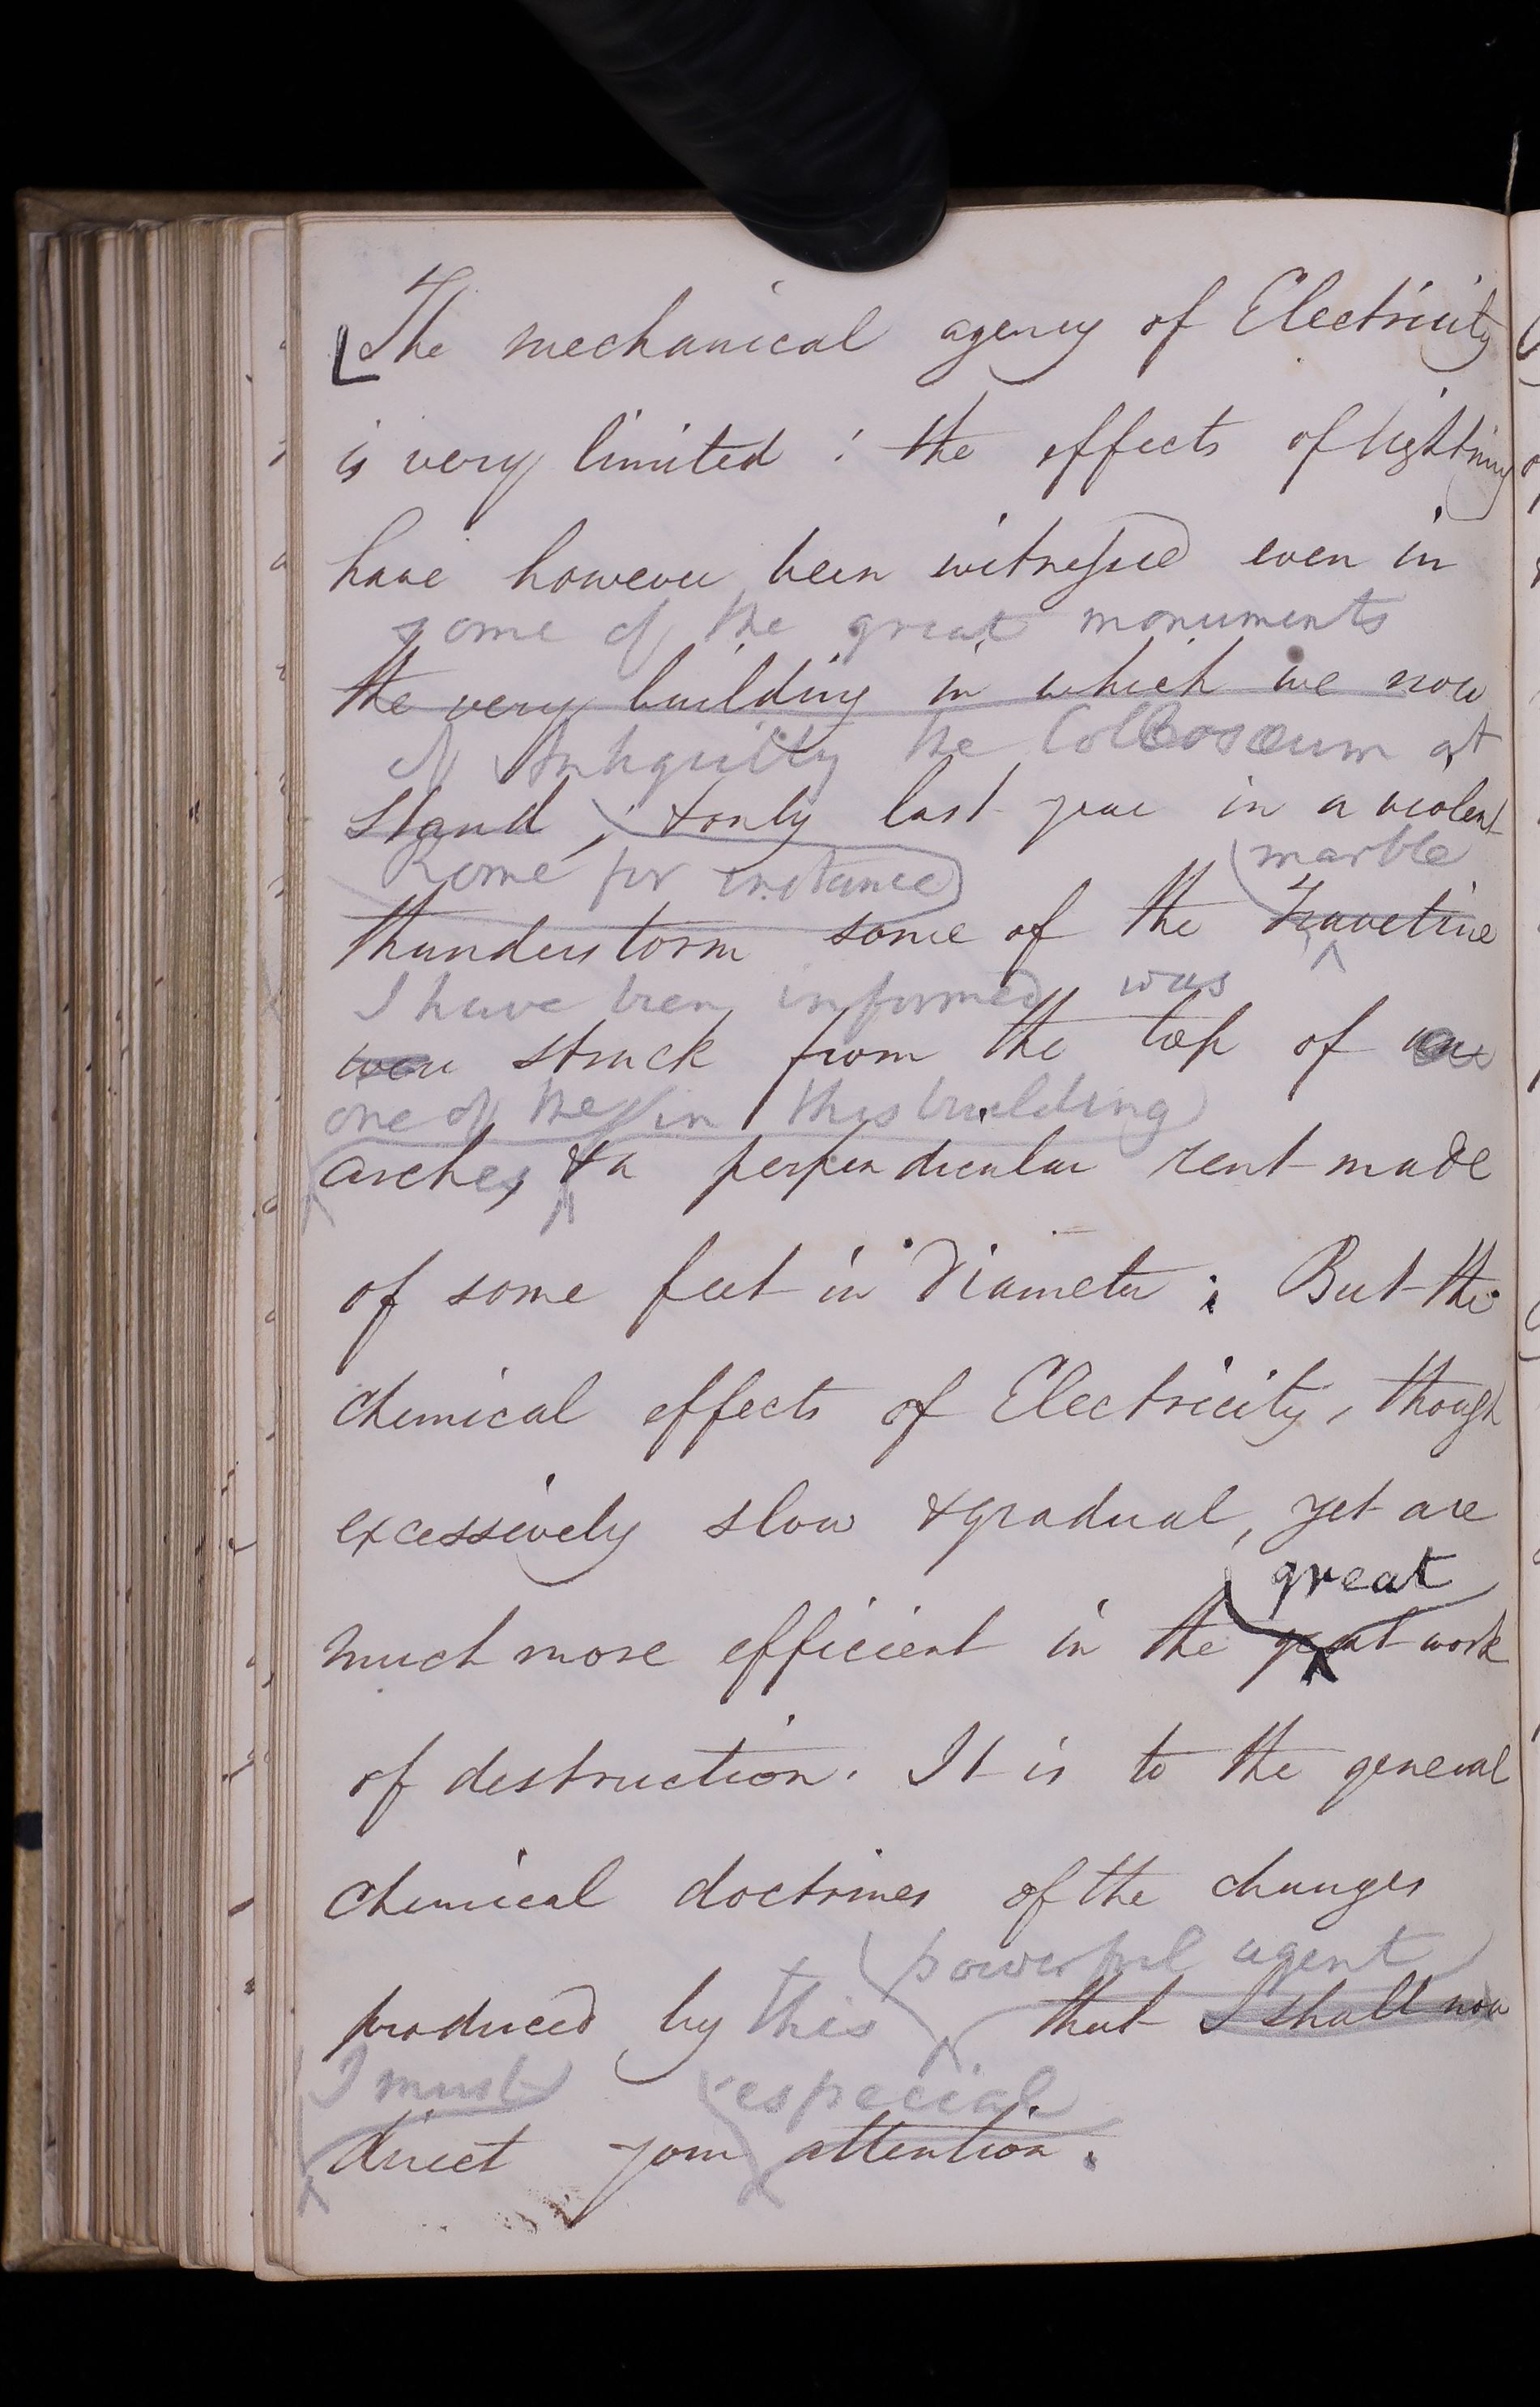 The mechanical agency of Electricity
is very limited : the effects of lightning
have however been witnessed even in
some of the great monuments
the very building in which we now
of Antiquity the Colloseum at
stand, ; & only last year in a violent
Rome for instance
marble
thunderstorm some of the Travetine
I have been informed was
were struck from the top of
one of the in this building
arches, & a perpendicular rent made
of some feet in Diameter ; But the
chemical effects of Electricity, though
excessively slow & gradual, yet are
great
much more efficient in the great work
of destruction. It is to the general
chemical doctrines of the changes
powerful agent
produced by this that I shall now
I must especial
direct your attention.